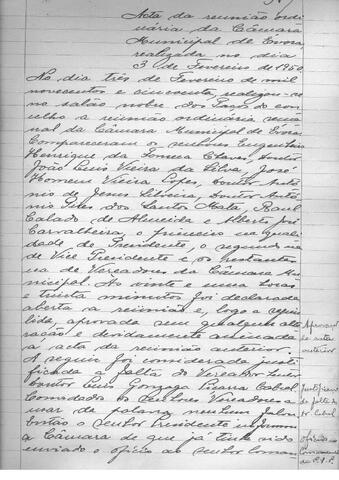 Acta da reunião ordi-
nária da Câmara
Municipal de Evora
realizada no dia
3 de Fevereiro de 1950
No dia três de Fevereiro de mil
novecentos e cincoenta, realizou-se
no salão nobre dos Paços do con-
celho a reunião ordinária sema-
nal da Câmara Municipal de Evora.
Compareceram os senhores Engenheiro
Henrique da Fonseca Chaves, doutor
João Luis Vieira da Silva, José
Homem Vieira Lopes, doutor Antó-
nio de Jesus Silveira, doutor Antó-
nio dos Santos Mata, Raul
Calado de Almeida e Alberto José
Carvalheira, o primeiro na quali-
dade de Presidente, o segundo na
de Vice Presidente e os restantes
na de Vereadores da Câmara Mu-
nicipal. Ás vinte e uma horas
e trinta minutos foi declarada
aberta a reunião e, logo a seguir
lida, aprovada sem qualquer alte-
ração e devidamente assinada
a acta da reunião anterior.
Aprovação
da acta
anterior
A seguir foi considerada justi-
ficada a falta do Vereador senhor
doutor Luis Gonzaga Cabral
Justificação
da falta do
Dr. Cabral
Convidados os senhores Vereadores a
usar da palavra nenhum falou.
Então o senhor Presidente informou
a Câmara de que já tinha sido
enviado o oficio ao senhor Coman-
Oficio ao
Comandante
da P.S.P.